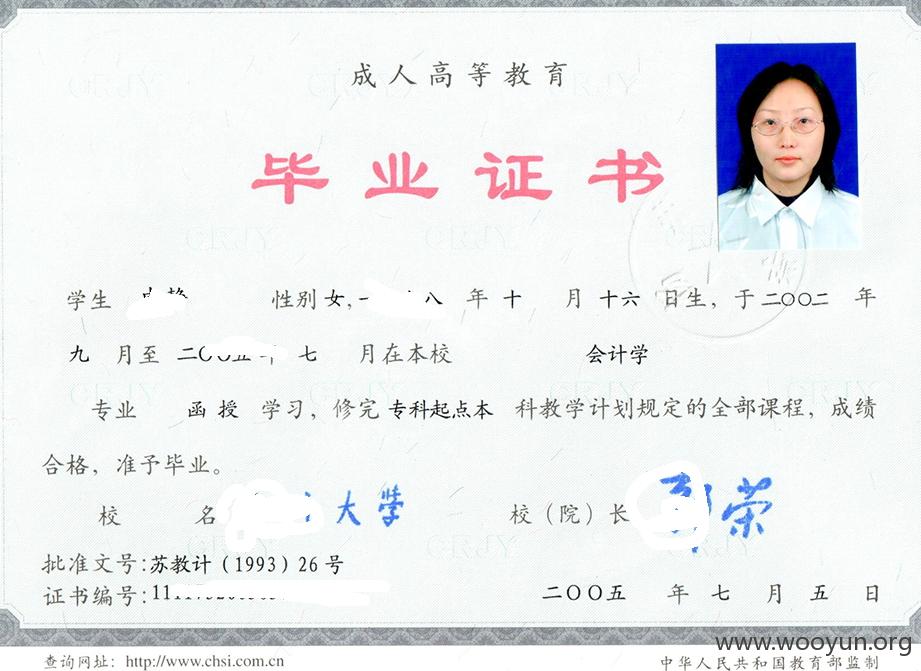 成人高等教育
毕业证书
学生 性别 女, 八 年 十 月 十六 日生, 于 二〇〇二 年
九 月至 二〇〇五 年 七 月在本校 会计学
专业 函授 学习, 修完 专科起点本 科教学计划规定的全部课程, 成绩
合格, 准予毕业。
校 名 大学 校(院)长 荣
批准文号:苏教计(1993)26号
证书编号:
二〇〇五 年 七 月 五 日
查询网址: http://www.chsi.com.cn 中华人民共和国教育部监制
www.wooyun.org